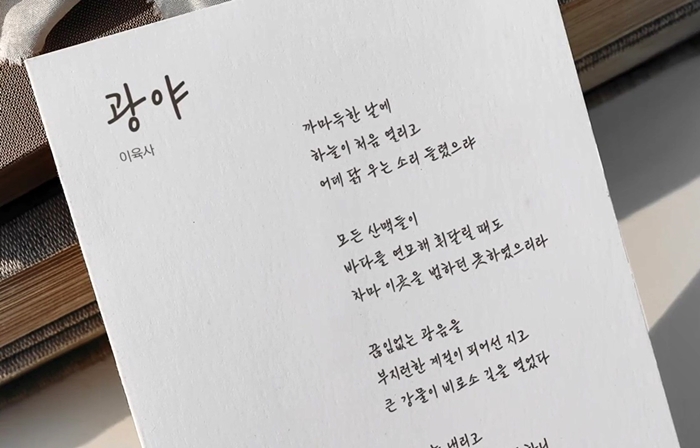 광야
이육사
까마득한 날에
하늘이 처음 열리고
어데 닭 우는 소리 들렸으랴
모든 산맥들이
바다를 연모해 휘달릴 때도
차마 이곳을 범하던 못하였으리라
끊임없는 광음을
부지런한 계절이 피어선 지고
큰 강물이 비로소 길을 열었다
내리고